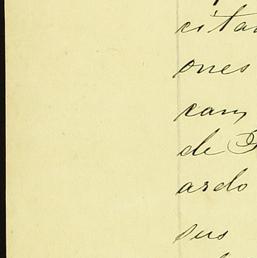 citan
ones
cam
de
ardo
sus